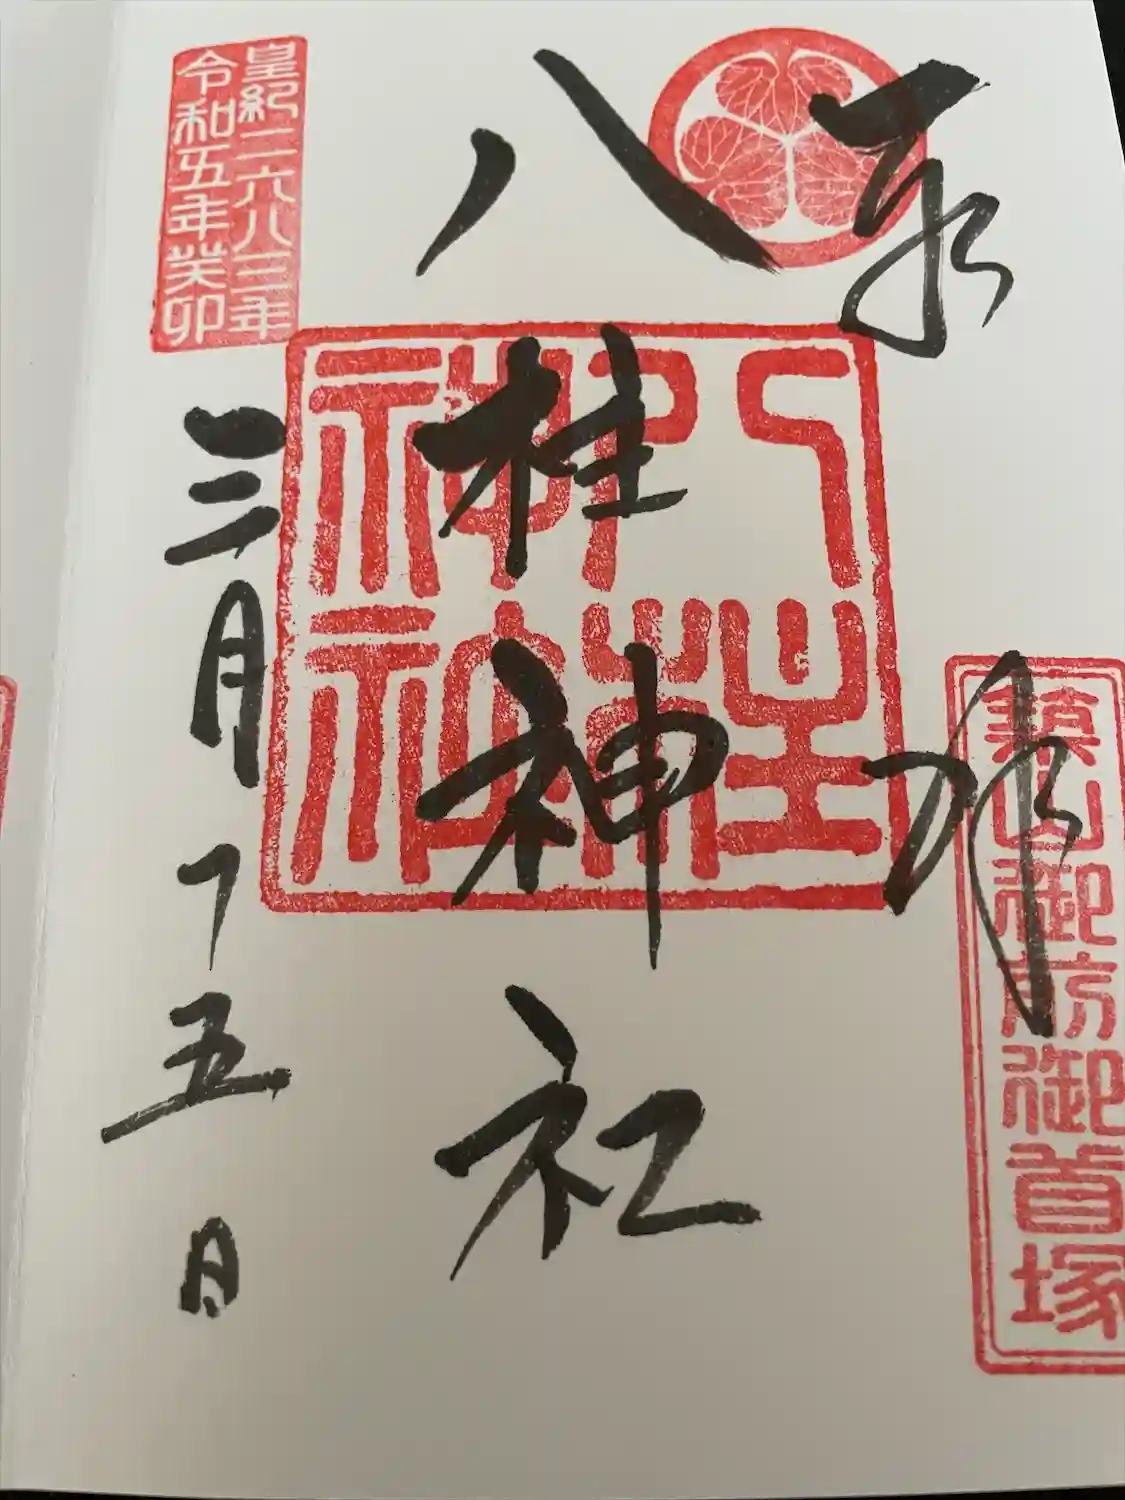 築山御前御首塚
八柱神社
八柱神社
皇紀二六八三年
令和五年癸卯
三月十五日